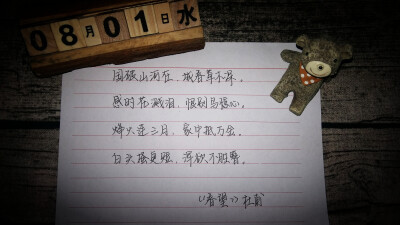 08月01日水
国破山河在，城春草木深。
感时花溅泪，恨别鸟惊心。
烽火连三月，家书抵万金。
白头搔更短，浑欲不胜簪。
《春望》杜甫